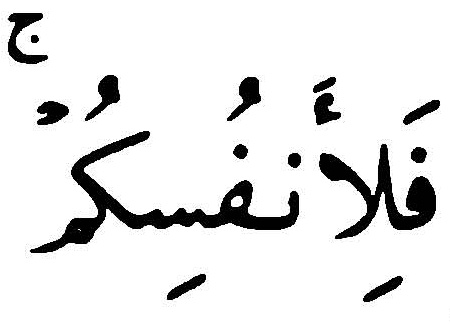 فَلِأَنفُسِكُمْۚ